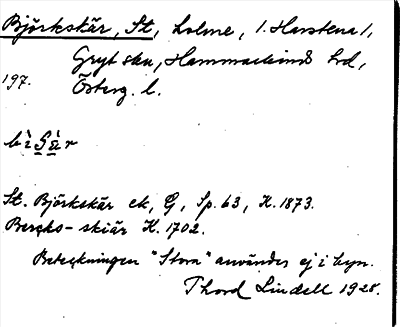 Björkskär, St, holme, (. Harstena),
Gryt skn, Hammarkinds hrd,
197. Österg. l.
St. Björkskär ek, G, Sp. 63, K. 1873.
Bercks-skiär K. 1702.
Beteckningen "Stora" användes ej i byn.
Thord Lindell 1928.